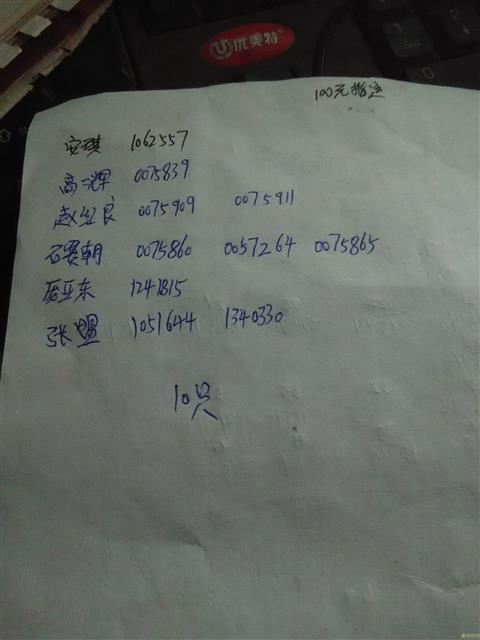 优美特
0
100元指定
安琪 1062557
高二辉 0075839
赵红良 0075909 0075911
石赛朝 0075860 0057264 0075865
亚东 1241815
张盟 1051644 1340330
10只